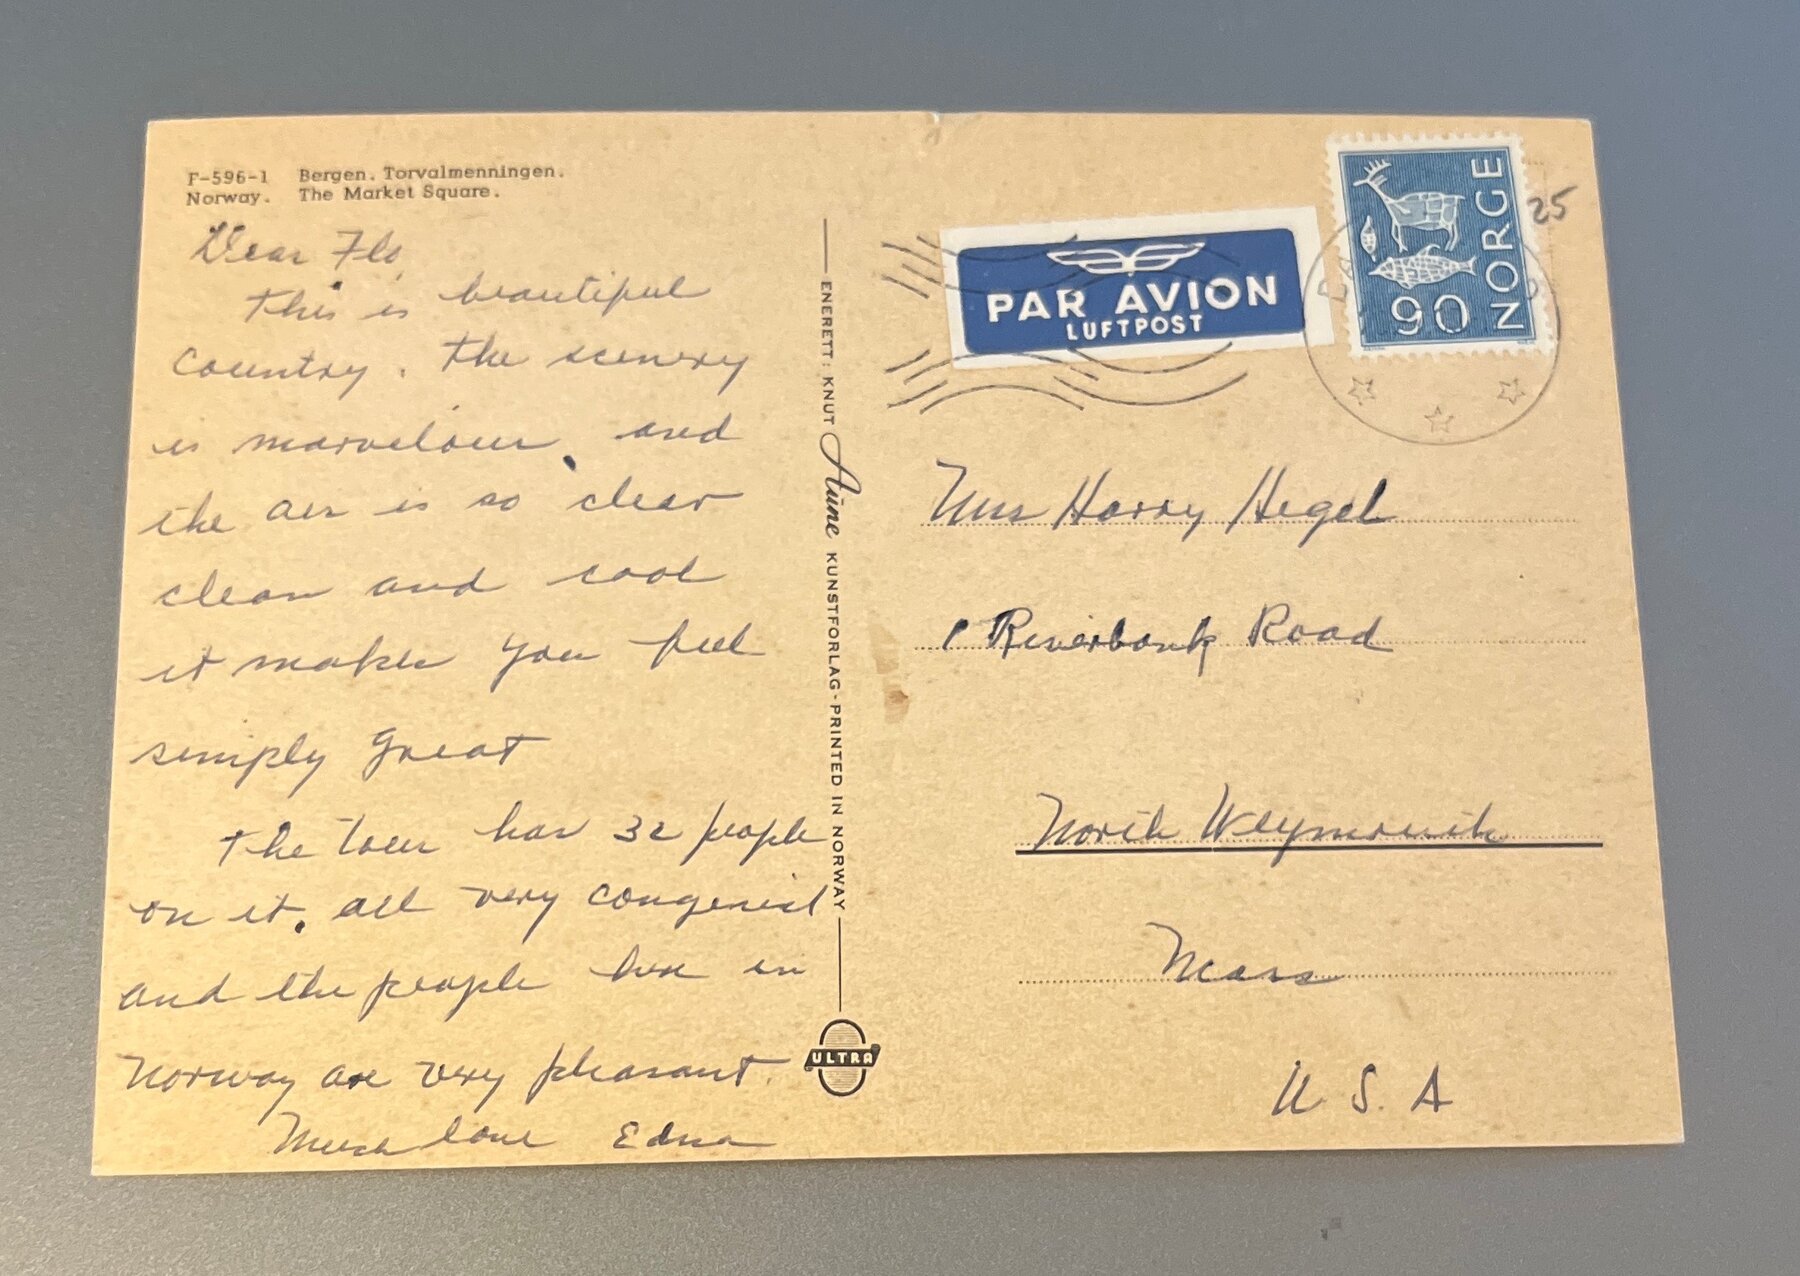 F-596-1 Bergen. Torvalmenningen.
Norway. The Market Square.
Dear Flo,
This is beautiful
country. The scenery
is marvelous, and
the air is so clear
clean and cool
it makes you feel
simply great
The tour has 32 people
on it. all very congenial
and the people here in
Norway are very pleasant.
Much love Edna
ENERETT: KNUT Aune KUNSTFORLAG - PRINTED IN NORWAY
ULTRA
PAR AVION
LUFTPOST
NORGE
90
25
Mrs Harry Hegel
Riverbank Road
North Weymouth
Mass
U. S. A